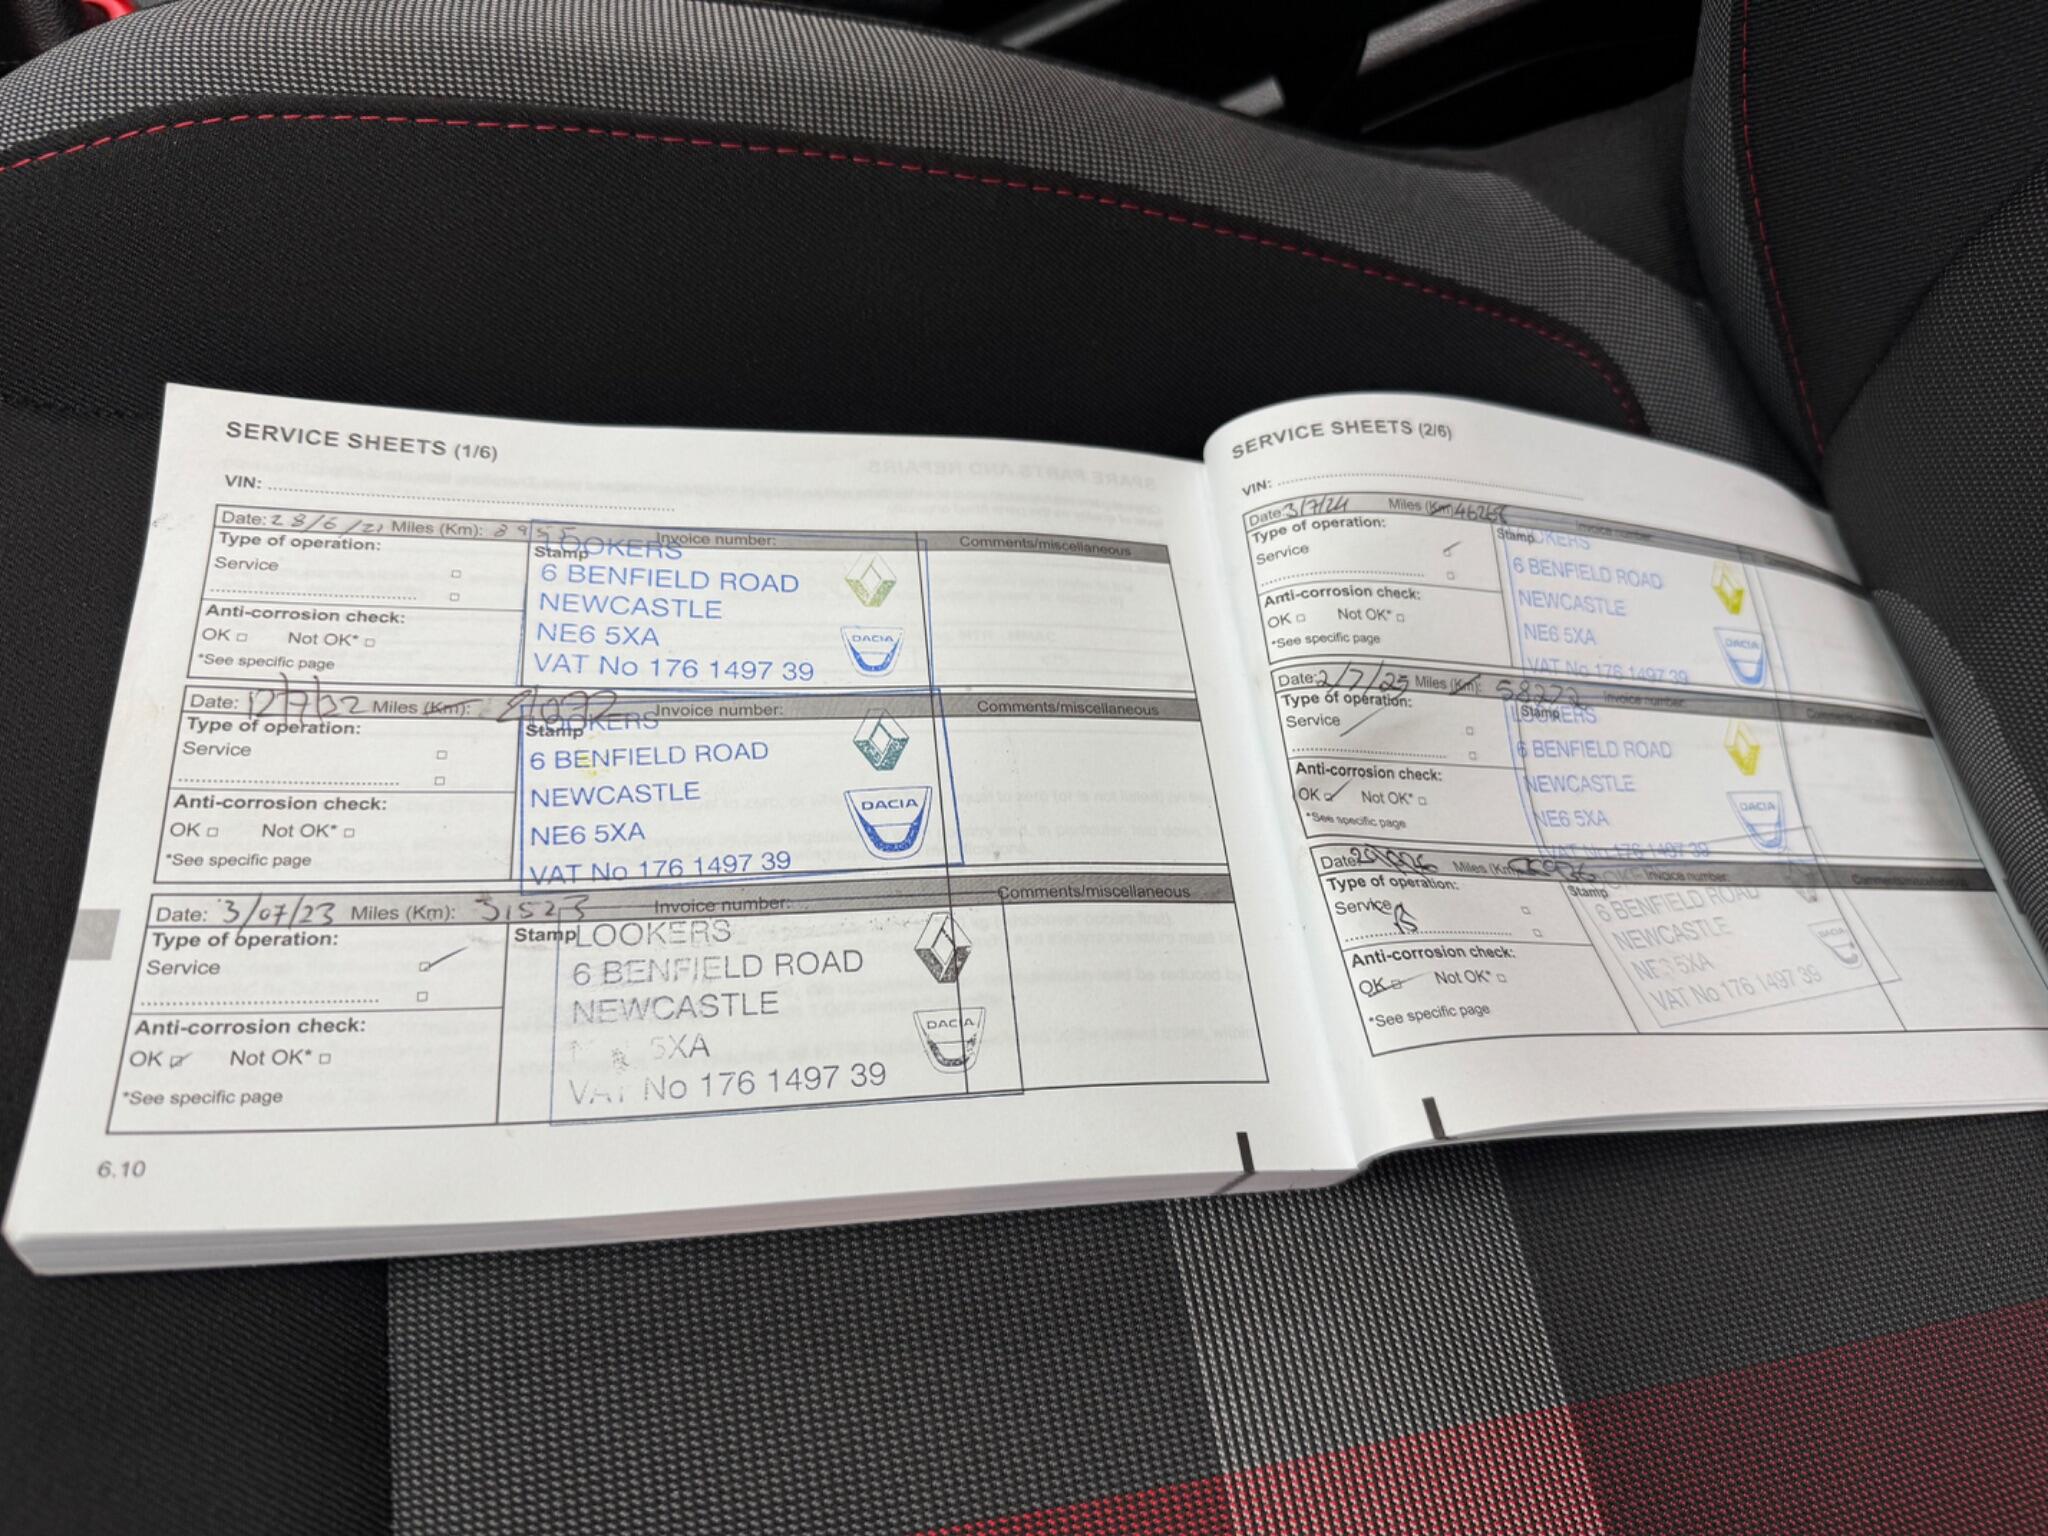 SERVICE SHEETS (1/6)
VIN:
Date: 28/6/21 Miles (Km): Invoice number: Comments/miscellaneous
Type of operation:
Service
Anti-corrosion check:
OK Not OK*
*See specific page
Stamp
LOOKERS
6 BENFIELD ROAD
NEWCASTLE
NE6 5XA
VAT No 176 1497 39
DACIA
Date: 12/7/22 Miles (Km): Invoice number: Comments/miscellaneous
Type of operation:
Service
Anti-corrosion check:
OK Not OK*
*See specific page
Stamp
LOOKERS
6 BENFIELD ROAD
NEWCASTLE
NE6 5XA
VAT No 176 1497 39
DACIA
Date: 3/07/23 Miles (Km): 31523 Invoice number: Comments/miscellaneous
Type of operation:
Service
Anti-corrosion check:
OK Not OK*
*See specific page
Stamp
LOOKERS
6 BENFIELD ROAD
NEWCASTLE
5XA
VAT No 176 1497 39
DACIA
6.10
SERVICE SHEETS (2/6)
VIN:
Date: 3/7/24 Miles (Km) Invoice number:
Type of operation:
Service
Anti-corrosion check:
OK Not OK*
*See specific page
Stamp
LOOKERS
6 BENFIELD ROAD
NEWCASTLE
NE6 5XA
VAT No 176 1497 39
DACIA
Date: 2/7/25 Miles (Km): 58272 Invoice number:
Type of operation:
Service
Anti-corrosion check:
OK Not OK*
*See specific page
Stamp
LOOKERS
6 BENFIELD ROAD
NEWCASTLE
NE6 5XA
VAT No 176 1497 39
DACIA
Date: Miles (Km): Invoice number: Comments/miscellaneous
Type of operation:
Service
Anti-corrosion check:
OK Not OK*
*See specific page
Stamp
6 BENFIELD ROAD
NEWCASTLE
5XA
VAT No 176 1497 39
DACIA